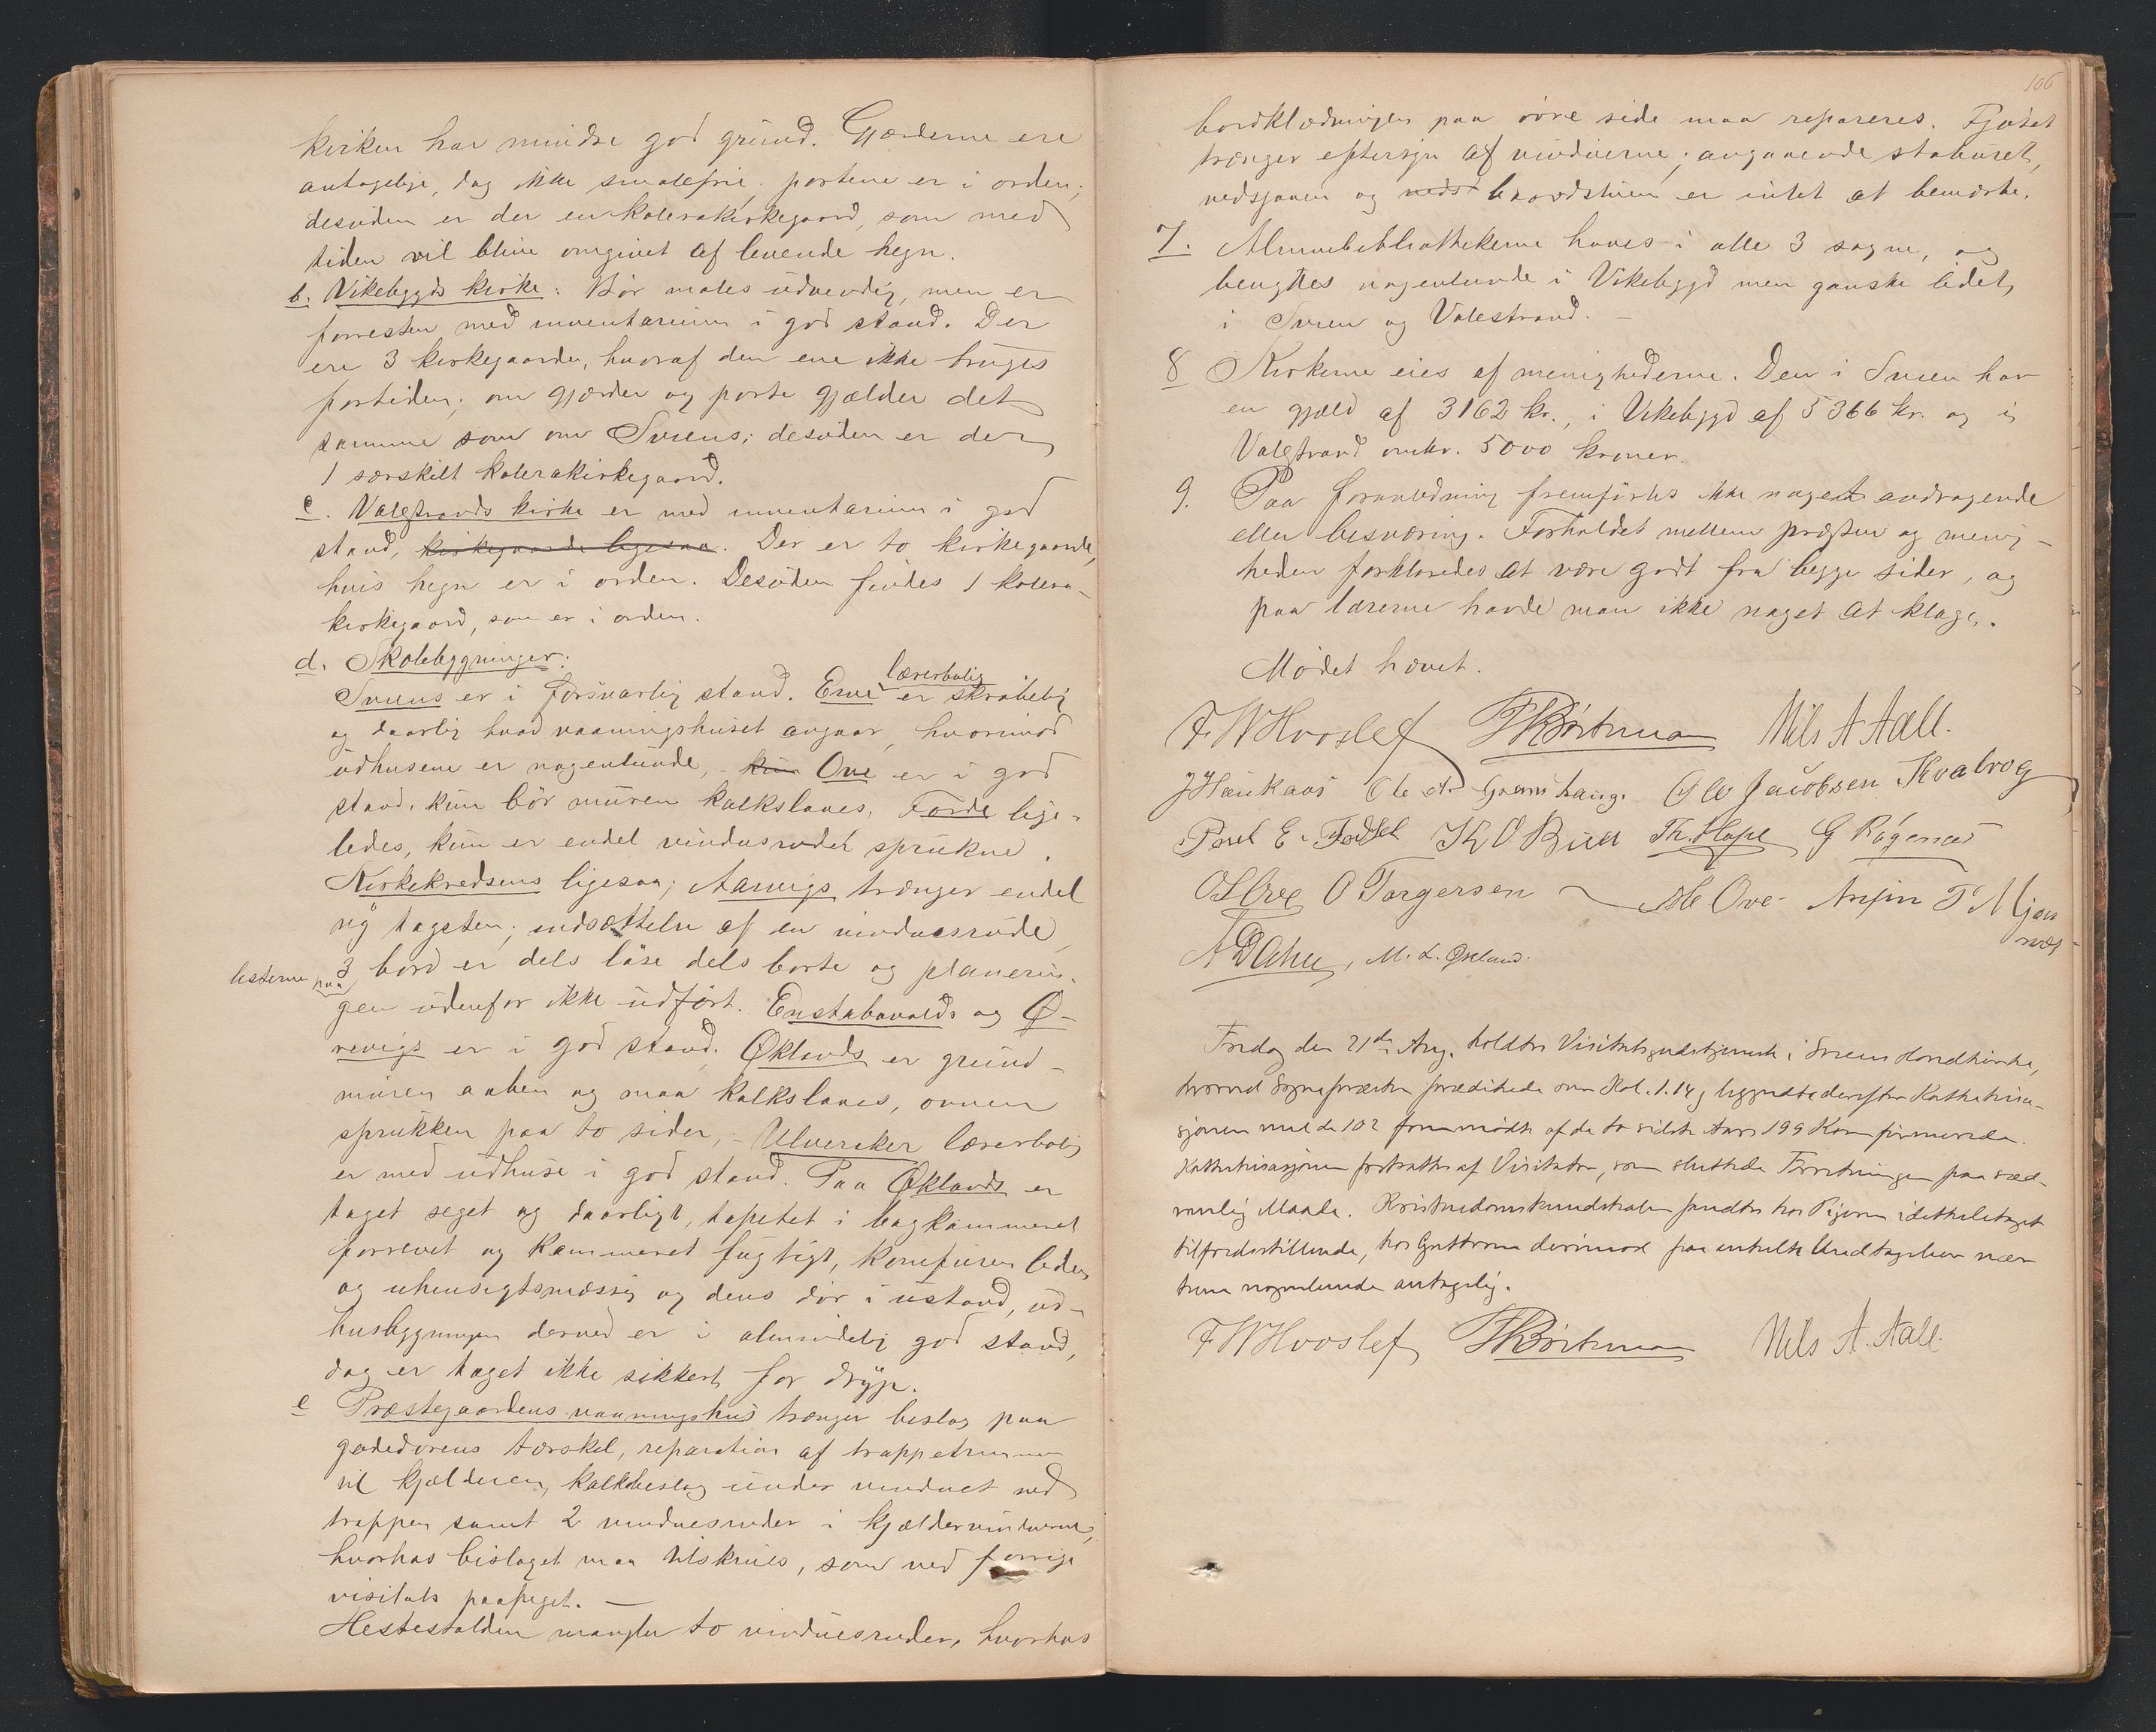 kirken har mindre god grund. Gjærderne ere
antagelige, dog ikke smalefrie; portene er i orden;
desuden er der en kolerakirkegaard, som med
tiden vil blive omgivet af levende hegn.
b. Vikebygds kirke: Bör males udvendig, men er
forresten med inventarium i god stand. Der
ere 3 kirkegaarde, hvoraf den ene ikke bruges
fortiden; om gjærder og porte gjælder det
samme som om Sveens; desuden er der
1 særskilt kolerakirkegaard.
c. Valestrands kirke er med inventarium i god
stand, kirkegaarde ligesaa. Der er to kirkegaarde,
hvis hegn er i orden. Desuden findes 1 kolera-
kirkegaard, som er i orden.
d. Skolebygninger:
lærerbolig
Sveens er i forsvarlig stand. Erve er skröbelig
og daarlig hvad vaaningshuset angaar, hvorimod
udhusene er nogenlunde, - kun Ove er i god
stand, kun bör muren kalkslaaes. Förde lige-
ledes, kun er endel vinduesruder sprukne.
Kirkekredsens ligesaa; Aarvigs trænger endel
ny tagsten, indsættelse af en vinduesrude,
listerne paa
3 bord er dels löse dels borte og planerin-
gen udenfor ikke udfört. Enstabovolds og Ø-
revigs er i god stand. Øklands er grund-
muren aaben og maa kalkslaaes, ovnen
sprukken paa to sider, - Ulveraker lærerbolig
er med udhuse i god stand. Paa Øklands er
taget seget og daarligt, tapetet i bagkammeret
forrevet og kammeret fugtigt, komfuren liden
og uhensigtsmæssig og dens dör i ustand, ud-
husbygningen derved er i almindelig god stand,
dog er taget ikke sikkert for dryp.
e Præstegaardens vaaningshus trænger beslag paa
gadedörens tærskel, reparation af trappetrinnene
til kjælderen, kalkbeslag under vinduet ved
trappen samt 2 vinduesruder i kjældervinduerne,
hvorhos beslaget maa tilskrues, som ved forrige
visitats paapeget. —
Hestestalden mangler to vinduesruder, hvorhos
106
bordklædningen paa övre side maa repareres. Fjöset
trænger eftersyn af vinduerne; angaaende staburet,
vedsjaaen og veds baardstuen er intet at bemærke.
7. Almuebibliothekerne haves i alle 3 sogne, og
benyttes nogenlunde i Vikebygd men ganske lidet
i Sveen og Valestrand. —
8 Kirkerne eies af menighederne. Den i Sveen har
en gjæld af 3162 kr., i Vikebygd af 5366 kr. og i
Valestrand omkr. 5000 kroner.
9. Paa foranledning fremförtes ikke noget andragende
eller besværing. Forholdet mellem præsten og menig-
heden forklaredes at være godt fra begge sider, og
paa lærerne havde man ikke noget at klage.
Mödet hævet.
F W Hvoslef Nils A Aall.
J Haukaas Ole Jacobsen Kvalvog
Poul E. Th. Hope
O Torgersen Ove Mjaas
næs
M. L. Økland.
Fredag den 21de Aug. holdtes Visitatsgudstjeneste i Sveens Hovedkirke,
hvorved Sognepræsten prædikede over Kol. 1.14 og begyndte derefter Kathekisa-
sjonen med de 102 fremmödte af de to sidste Aars 199 Konfirmerede.
Kathekisasjonen fortsattes af Visitator, som sluttede Forretningen paa sæd-
vanlig Maade. Kristendomskundskaben fandtes hos Pigerne i det hele taget
tilfredsstillende, hos Gutterne derimod paa enkelte Undtagelser nær
kun nogenlunde antagelig.
F W Hvoslef Nils A. Aall.